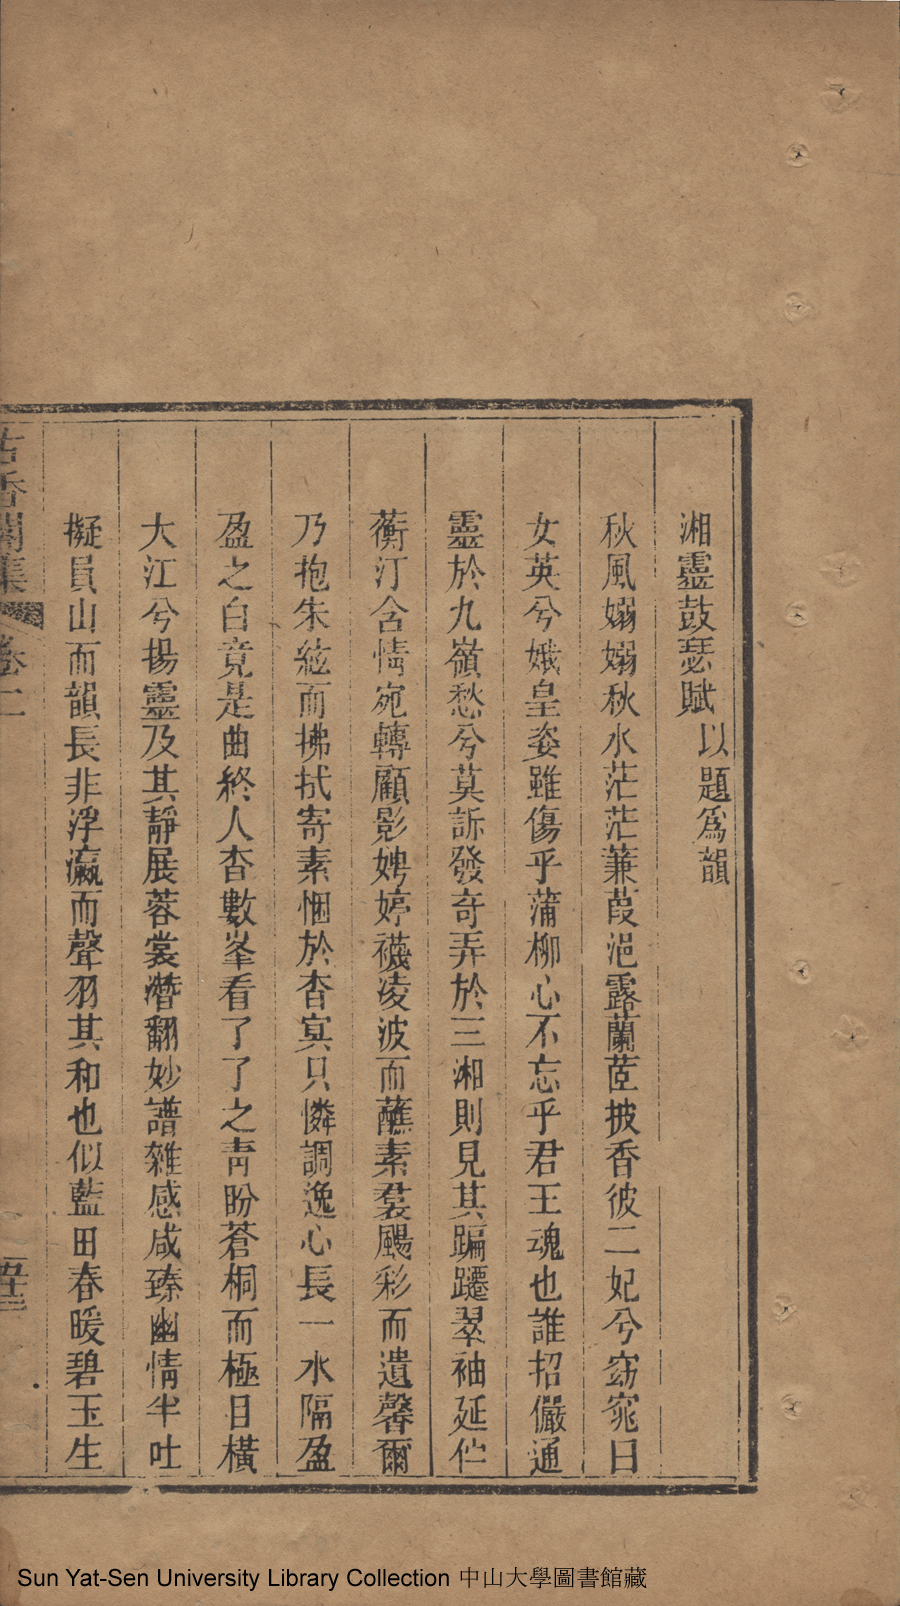 湘靈鼓瑟賦以題爲韻
秋風嫋嫋秋水茫茫蒹葭浥露蘭茝披香彼二妃兮窈窕曰
女英兮娥皇姿雖傷乎蒲柳心不忘乎君王魂也誰招儼通
靈於九嶺愁兮莫訴發奇弄於三湘則見其蹁躚翠袖延伫
蘅汀含情宛轉顧影娉婷襪凌波而蘸素裠颺彩而遺馨爾
乃抱朱絃而拂拭寄素悃於杳冥只憐調逸心長一水隔盈
盈之白竟是曲終人杳數峯看了了之青盼蒼桐而極目橫
大江兮揚靈及其靜展蓉裳潛翻妙譜雜感咸臻幽情半吐
擬員山而韻長非浮瀛而聲羽其和也似藍田春暖碧玉生
古香閣集 卷二 五十三
Sun Yat-Sen University Library Collection 中山大學圖書館藏